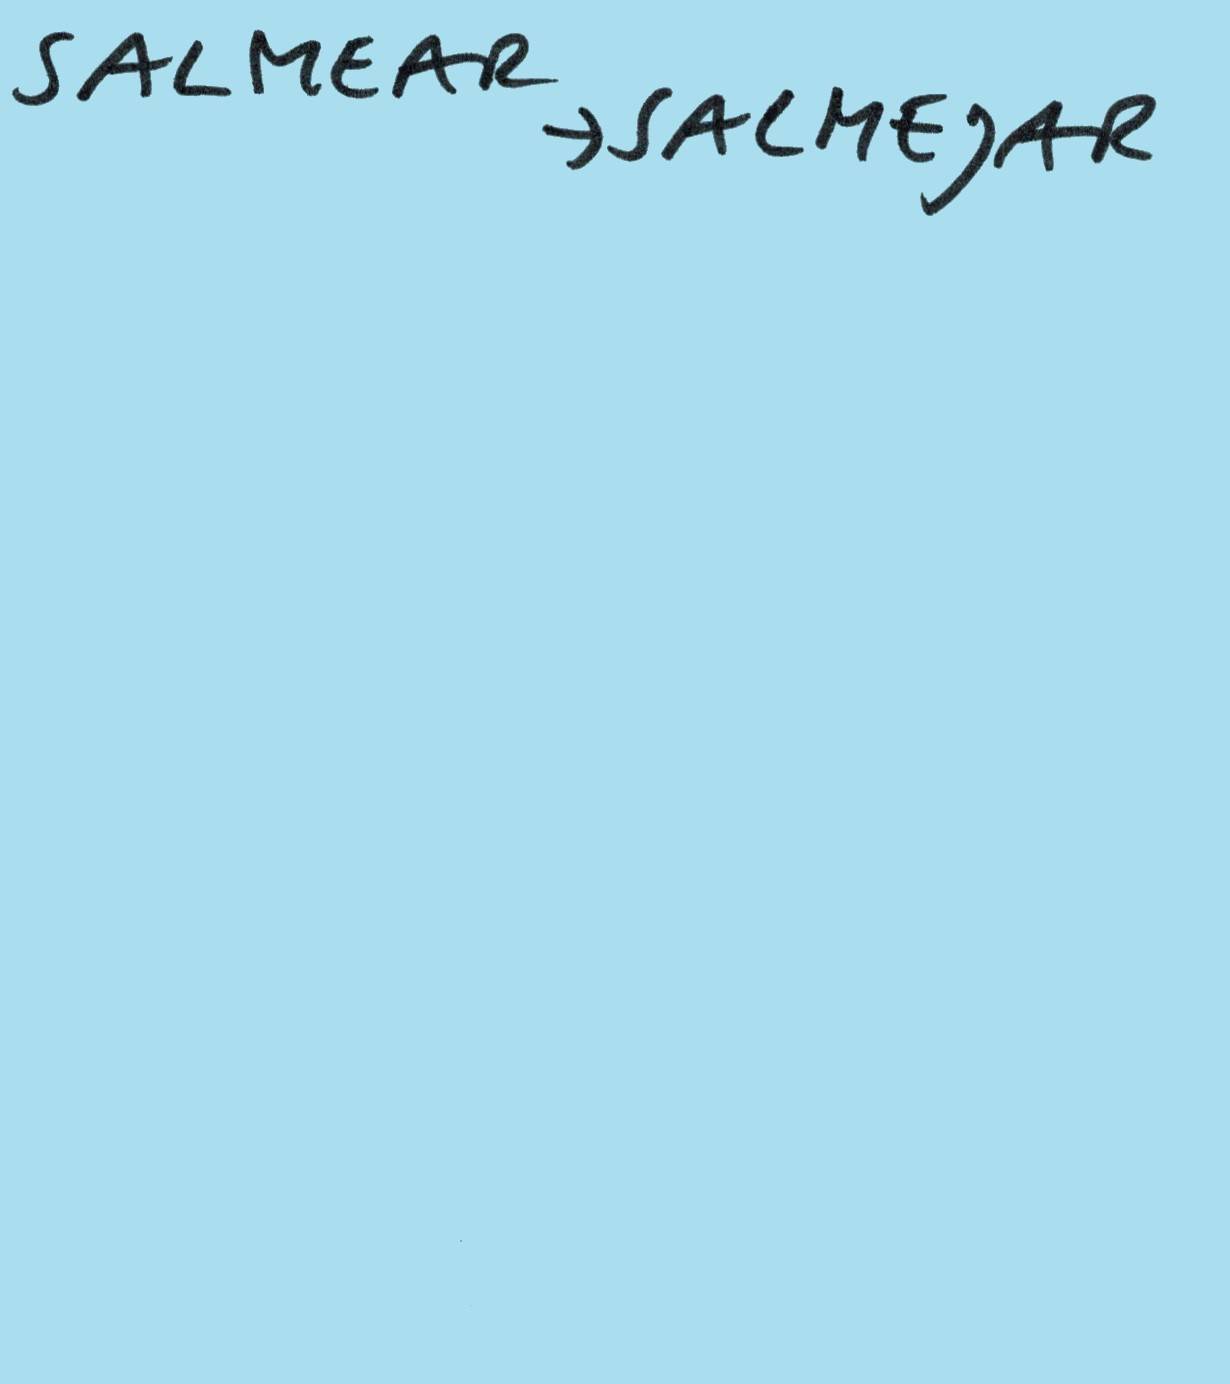 SALMEAR
→SALMEJAR